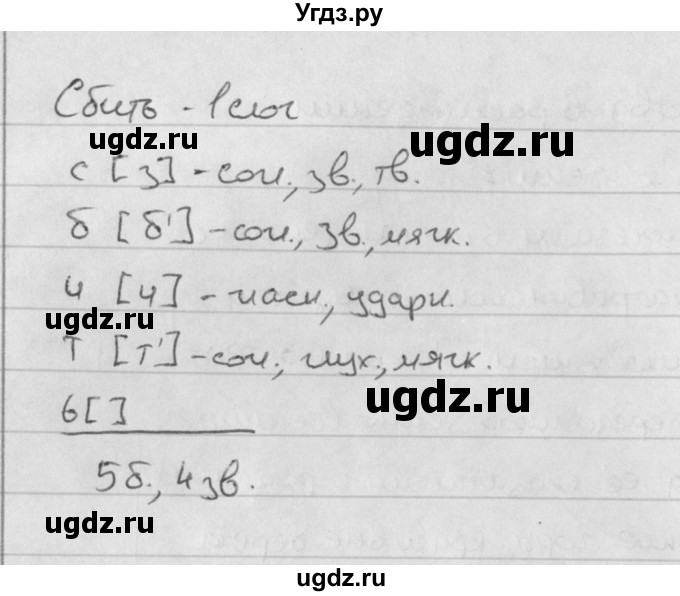 Угдз.ру
Сбить - 1 слог
ugdz.ru ugdz.ru
с [з] - сог., зв., тв.
б [б'] - сог., зв., мягк.
и [и] - гласн, ударн.
ugdz.ru
т [т'] - сог., глух., мягк.
ugdz.ru
ь [ ]
5б., 4 зв.
ugdz.ru
ugdz.ru